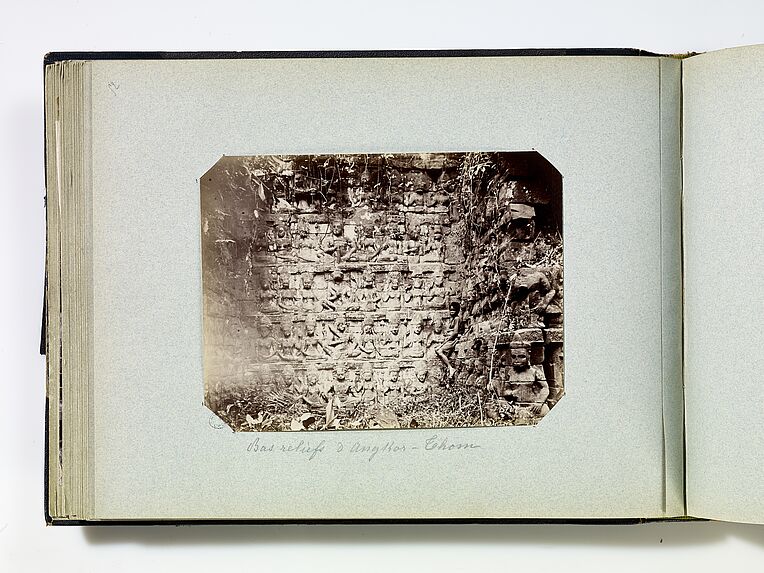 Bas reliefs d'Angkor-Thom